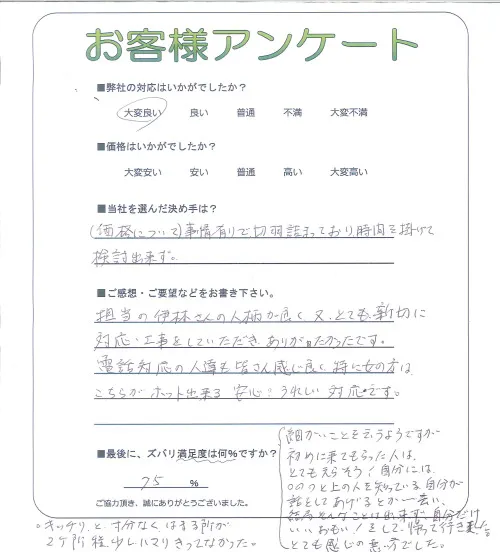 お客様アンケート
■弊社の対応はいかがでしたか?
大変良い 良い 普通 不満 大変不満
■価格はいかがでしたか?
大変安い 安い 普通 高い 大変高い
■当社を選んだ決め手は?
(価格について)事情有りで切羽詰まっており時間を掛けて
検討出来ず。
■ご感想・ご要望などをお書き下さい。
担当の伊林さんの人柄が良く又、とても親切に
対応・工事をしていただきありがたかったです。
電話対応の人達も皆さん感じ良く特に女の方は
こちらがホット出来る安心!うれしい対応です。
■最後に、ズバリ満足度は何%ですか?
75 %
ご協力頂き、誠にありがとうございました。
細かいことを言うようですが
初めに来てもらった人は、
とてもえらそう!自分には、
○○の上の人を知っている自分が
話をしてあげるとか言い、
結局そんなことは出来ず、自分だけ
いいおもいをして、帰って行きました
とても感じの悪い方でした。
○キッチリ、と、寸分なくはまる所が
2ヶ所程少しハマりきってなかった。